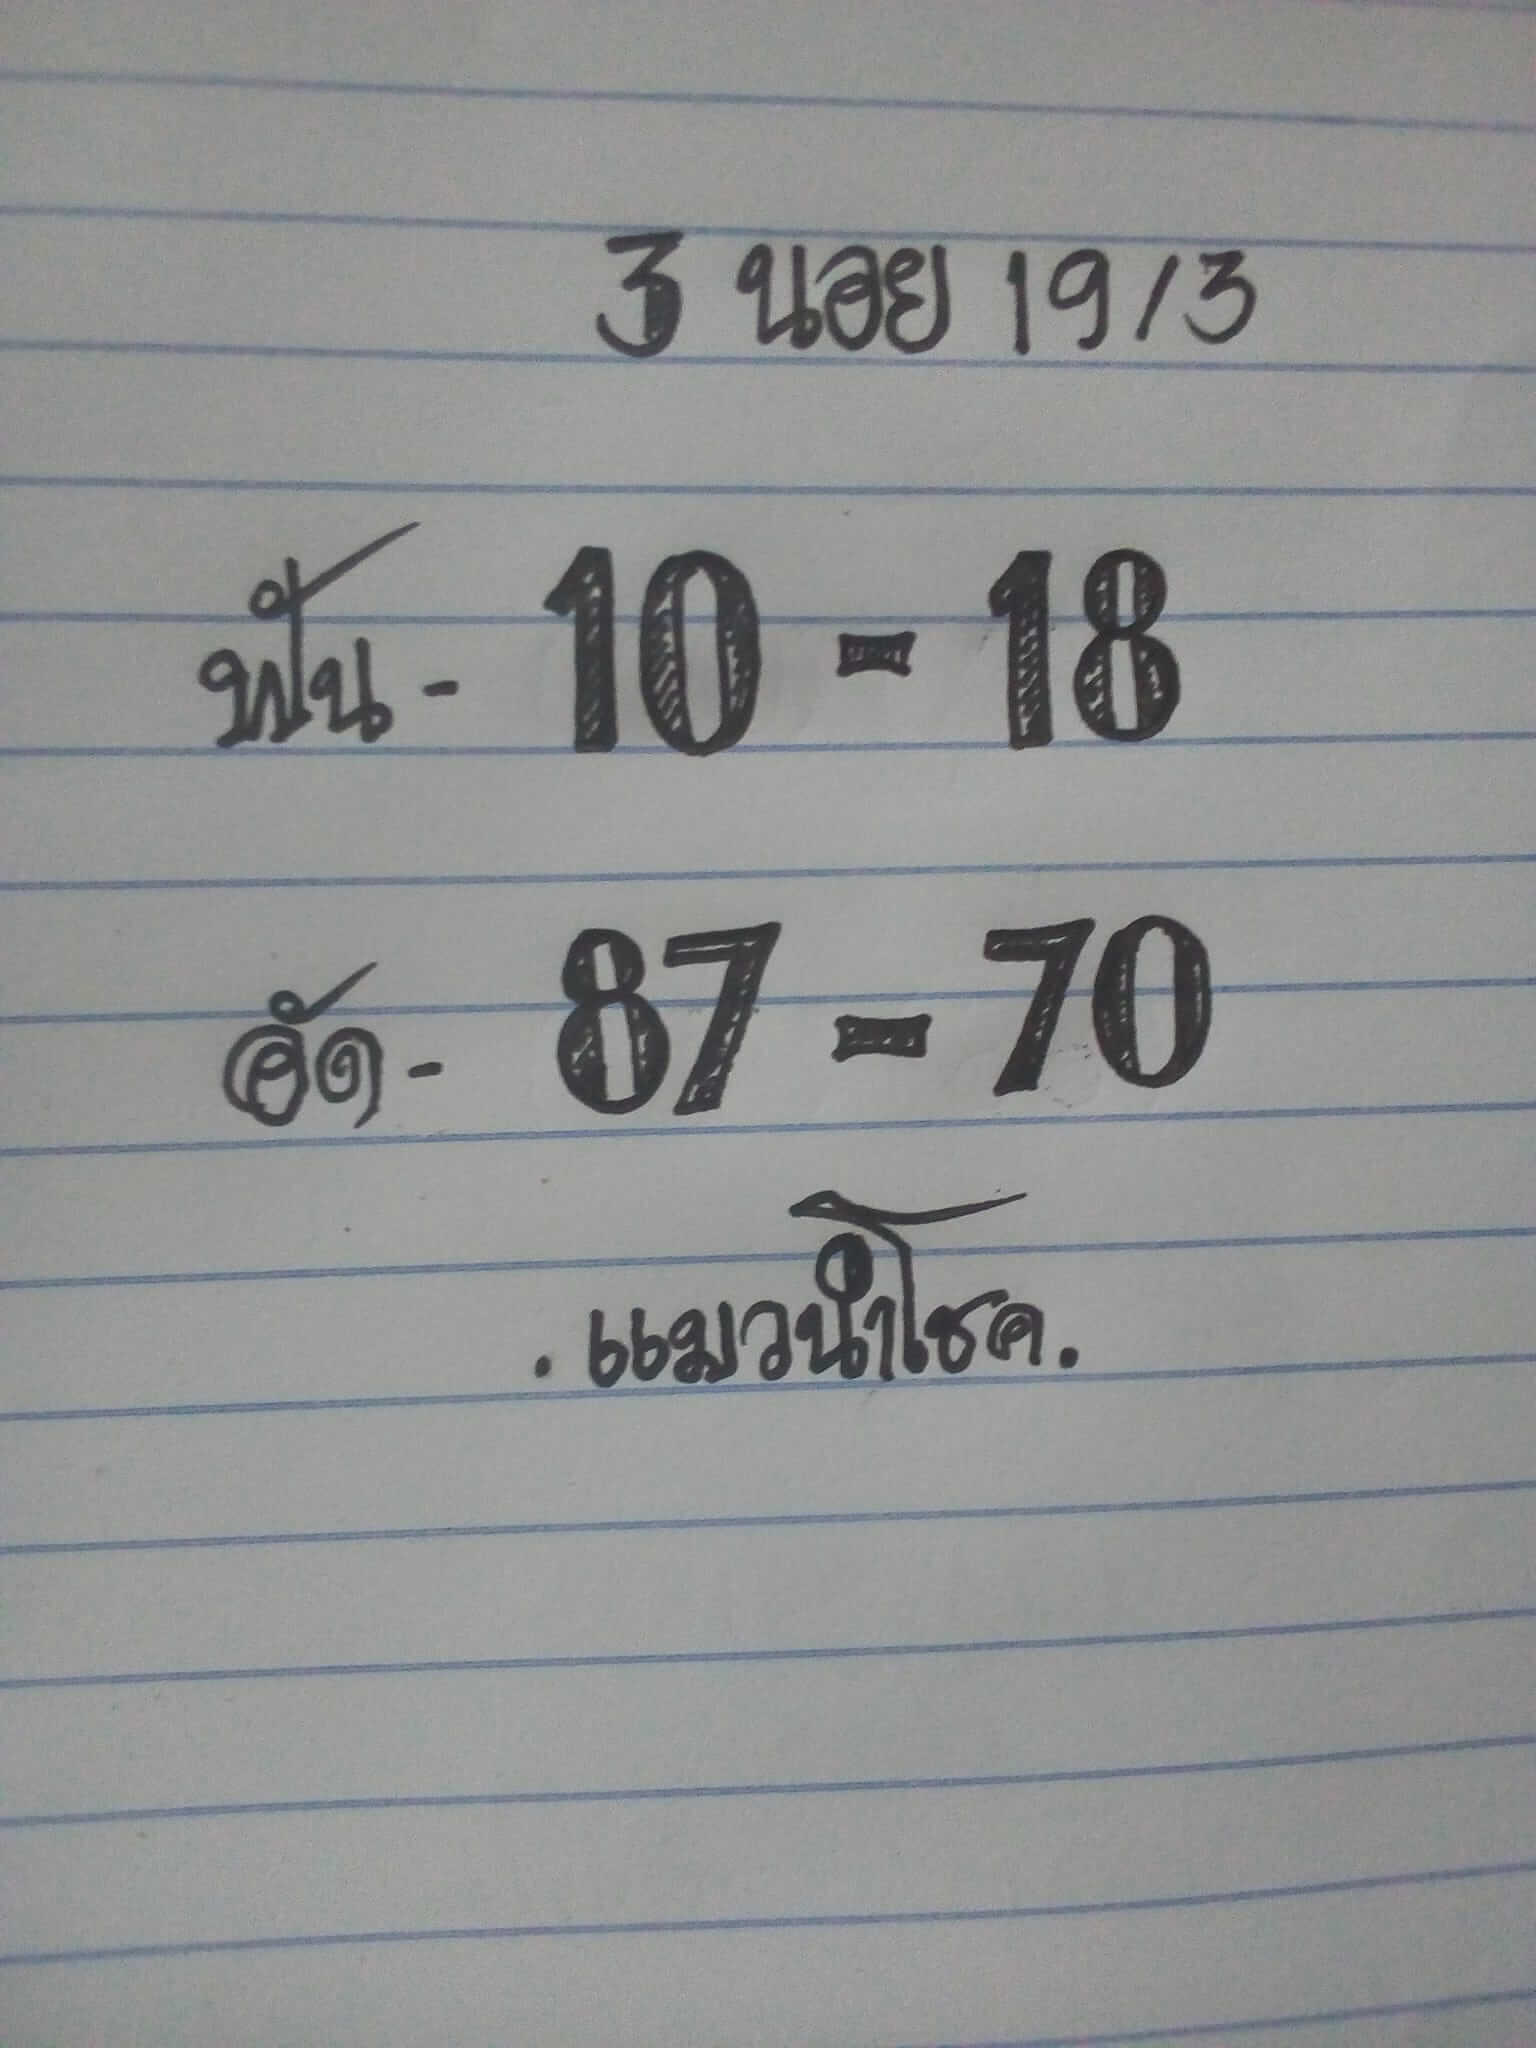 3 นอย 19/3
ฟัน - 10 - 18
อัด - 87 - 70
. แมวนำโชค.